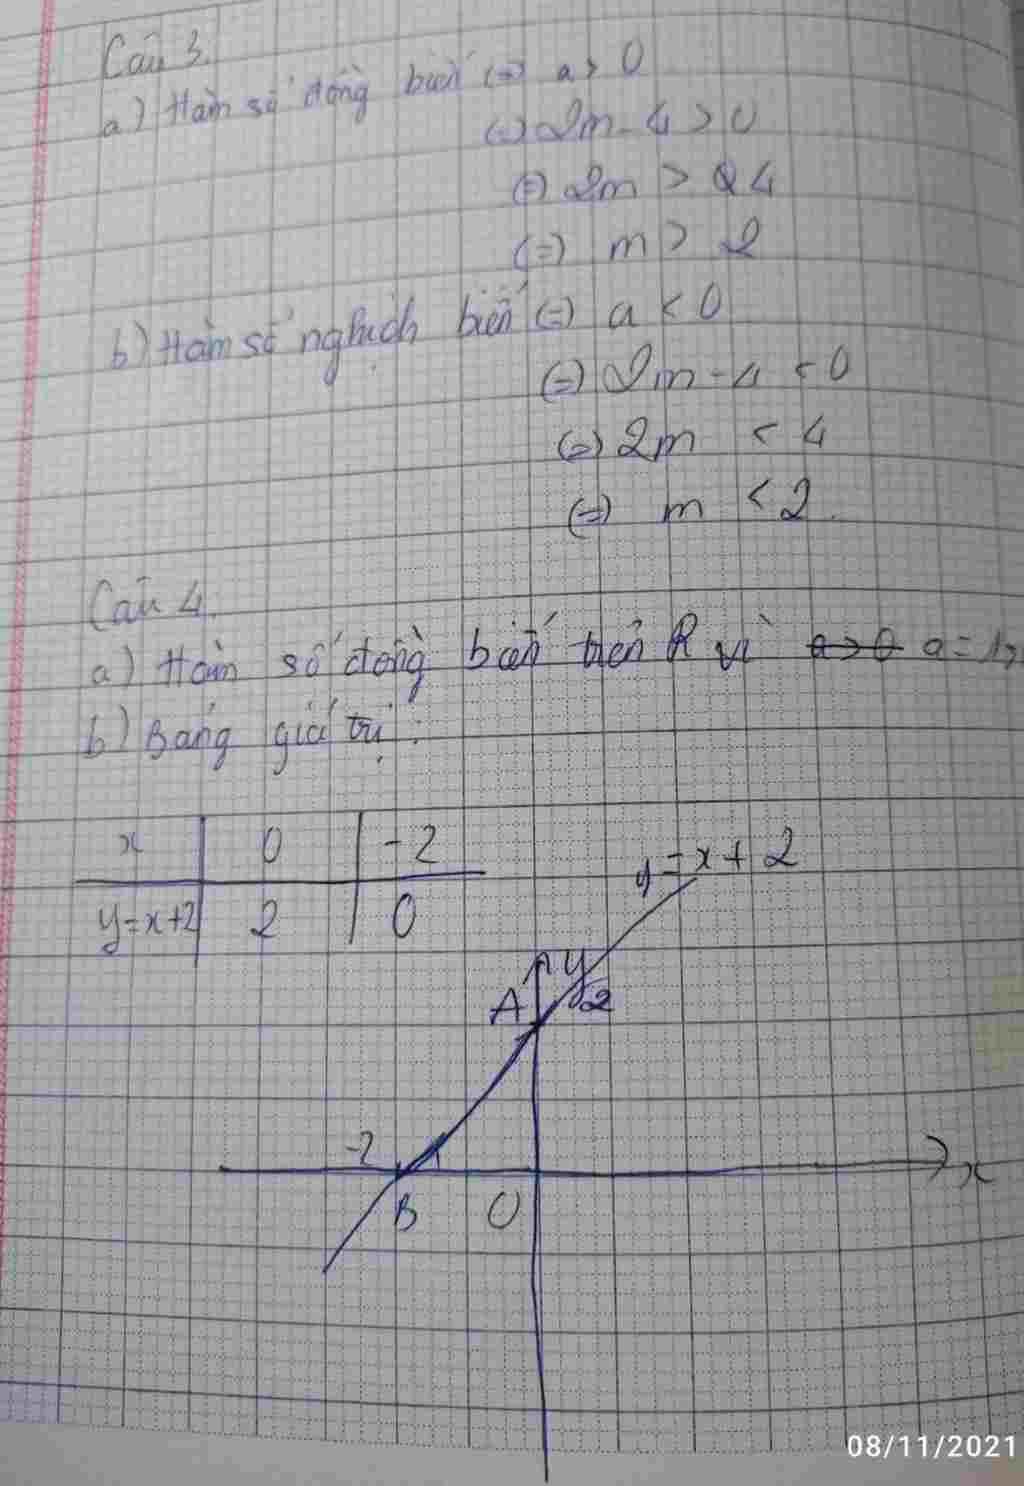 Câu 3.
a) Hàm số đồng biến (=) a > 0
(=) 2m - 4 > 0
(=) 2m > 4
(=) m > 2
b) Hàm số nghịch biến (=) a < 0
(=) 2m - 4 < 0
(=) 2m < 4
(=) m < 2.
Câu 4.
a) Hàm số đồng biến trên R vì a > 0 a = 1>
b) Bảng giá trị:
x 0 -2
y=x+2 2 0
y=x+2
y
A 2
-2
x
B O
08/11/2021